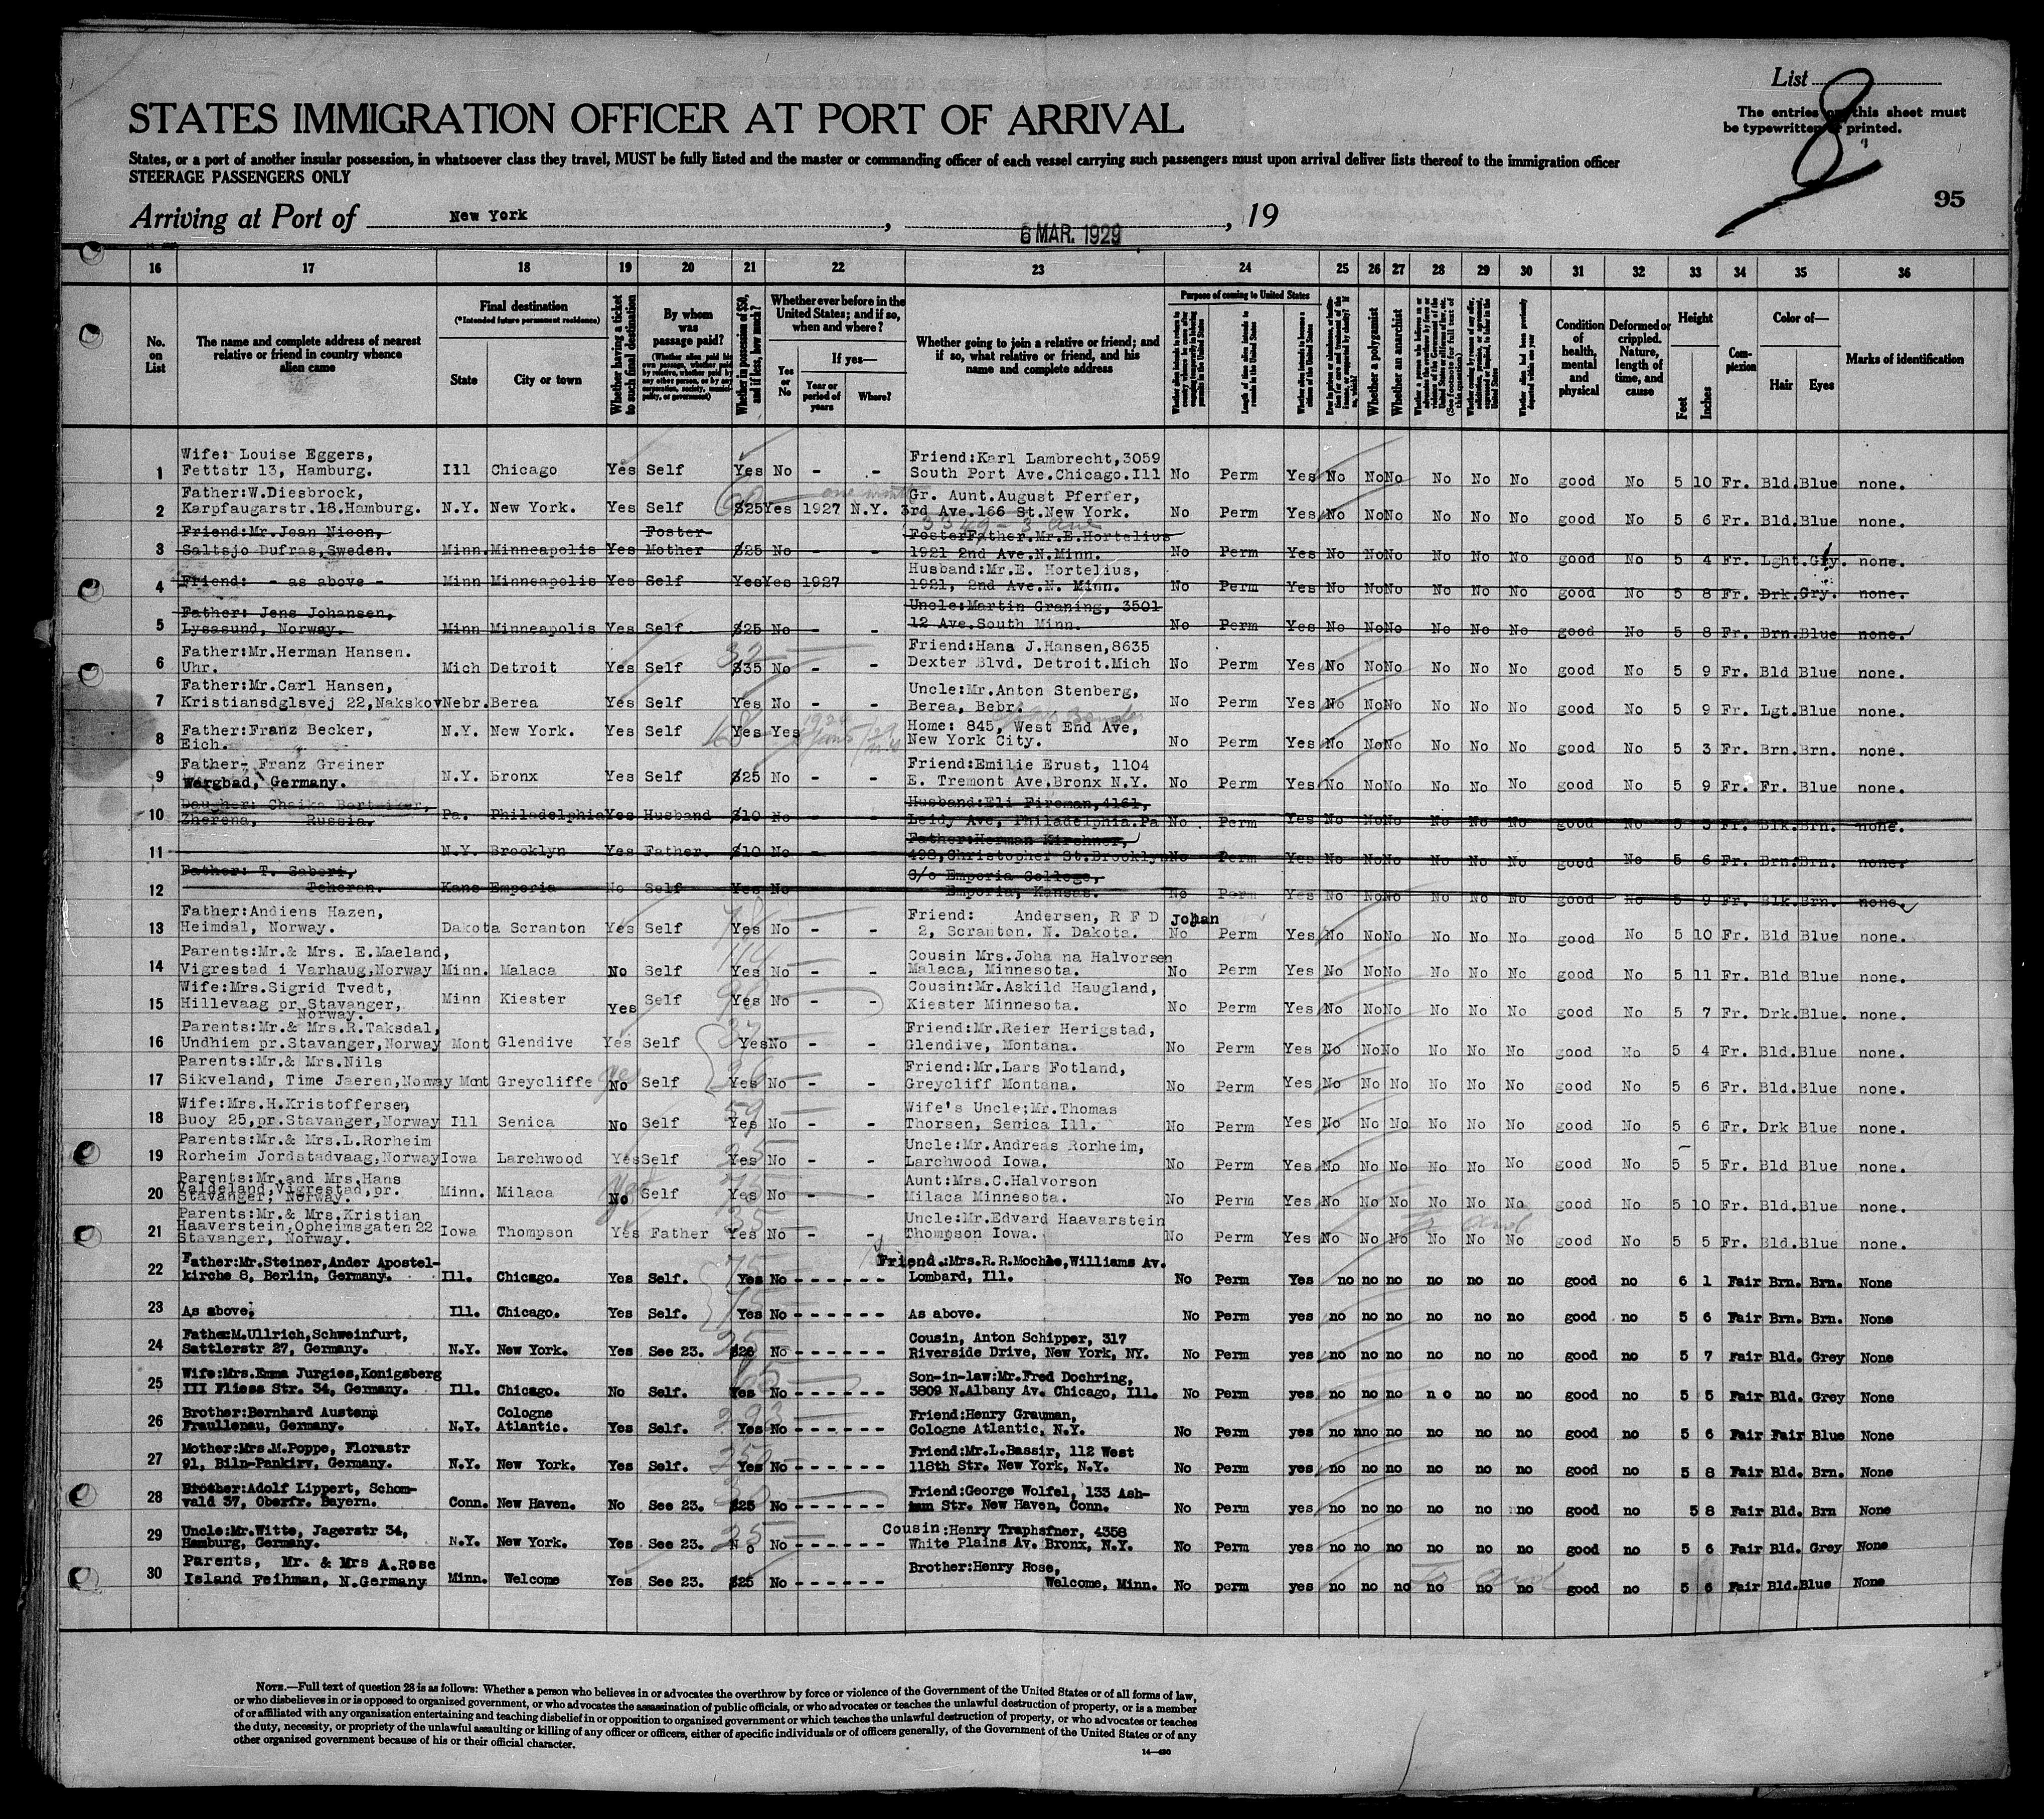 List
8
The entries on this sheet must
be typewritten or printed.
STATES IMMIGRATION OFFICER AT PORT OF ARRIVAL
States, or a port of another insular possession, in whatsoever class they travel, MUST be fully listed and the master or commanding officer of each vessel carrying such passengers must upon arrival deliver lists thereof to the immigration officer
STEERAGE PASSENGERS ONLY
95
Arriving at Port of New York, 6 MAR. 1929, 19
16 17 18 19 20 21 22 23 24 25 26 27 28 29 30 31 32 33 34 35 36
No. on List
The name and complete address of nearest relative or friend in country whence alien came
Final destination
(*Intended future permanent residence)
State
City or town
Whether having a ticket to such final destination
By whom was passage paid?
(Whether alien paid his own passage, whether paid by relative, whether paid by any other person, or by any corporation, society, municipality, or government)
Whether in possession of $50, and if less, how much?
Whether ever before in the United States; and if so, when and where?
Yes or No
If yes—
Year or period of years
Where?
Whether going to join a relative or friend; and if so, what relative or friend, and his name and complete address
Purpose of coming to United States
Length of time alien intends to remain in the United States
Whether alien intends to become a citizen of the United States
Whether a polygamist
Whether an anarchist
Whether alien had been previously deported within one year
Condition of health, mental and physical
Deformed or crippled. Nature, length of time, and cause
Height
Feet
Inches
Complexion
Color of—
Hair
Eyes
Marks of identification
Wife: Louise Eggers, Friend:Karl Lambrecht,3059
1 Fettstr 13, Hamburg. Ill Chicago Yes Self Yes No - - South Port Ave.Chicago.Ill No Perm Yes No No No No No No good No 5 10 Fr. Bld. Blue none.
Father:W.Diesbrock, Gr. Aunt.August Pferfer,
2 Karpfaugarstr.18.Hamburg. N.Y. New York. Yes Self $25 Yes 1927 N.Y. 3rd Ave.166 St.New York. No Perm Yes No No No No No No good No 5 6 Fr. Bld. Blue none.
3349 - 3. Ave
Friend:Mr.Jean Nicon, Foster FosterFather.Mr.E.Hortelius
3 Saltsjo Dufras,Sweden. Minn. Minneapolis Yes Mother $25 No - - 1921 2nd Ave.N.Minn. No Perm Yes No No No No No No good No 5 4 Fr. Lght. Gry. none.
Husband:Mr.E. Hortelius,
4 Friend: - as above - Minn Minneapolis Yes Self Yes Yes 1927 1921, 2nd Ave.N. Minn. No Perm Yes No No No No No No good No 5 8 Fr. Drk. Gry. none.
Father: Jens Johansen, Uncle:Martin Graning, 3501
5 Lysasund, Norway. Minn Minneapolis Yes Self $25 No - - 12 Ave.South Minn. No Perm Yes No No No No No No good No 5 8 Fr. Brn. Blue none.
Father:Mr.Herman Hansen. Friend:Hans J.Hansen,8635
6 Uhr. Mich Detroit Yes Self $35 No - - Dexter Blvd. Detroit.Mich No Perm Yes No No No No No No good No 5 9 Fr. Bld Blue none.
Father:Mr.Carl Hansen, Uncle:Mr.Anton Stenberg,
7 Kristiansdglsvej 22,Nakskov Nebr. Berea Yes Self Yes No - - Berea, Bebr. No Perm Yes No No No No No No good No 5 9 Fr. Lgt. Blue none.
Father:Franz Becker, Home: 845, West End Ave,
8 Eich. N.Y. New York. Yes Self Yes Yes New York City. No Perm Yes No No No No No No good No 5 3 Fr. Brn. Brn. none.
Father- Franz Greiner Friend:Emilie Erust, 1104
9 Wargbad, Germany. N.Y. Bronx Yes Self $25 No - - E. Tremont Ave.Bronx N.Y. No Perm Yes No No No No No No good No 5 9 Fr. Fr. Blue none.
Daugher: Chaika Husband:Eli Fireman,4161,
10 Zherena, Russia. Pa. Philadelphia Yes Husband $10 No - Leidy Ave, Philadelphia.Pa No Perm Yes No No No No No No good No 5 5 Fr. Blk. Brn. none.
Father:Herman Kirshner,
11 N.Y. Brooklyn Yes Father. $10 No - 498,Christopher St.Brooklyn No Perm Yes No No No No No No good No 5 6 Fr. Brn. Brn. none.
Father: T. Saberi, C/o Emporia College,
12 Teheran. Kans Emporia No Self Yes No - - Emporia, Kansas. No Perm Yes No No No No No No good No 5 9 Fr. Blk. Brn. none.
Father:Andiens Hazen, Friend: Andersen, R F D Johan
13 Heimdal, Norway. Dakota Scranton Yes Self Yes No - - 2, Scranton. N. Dakota. No Perm Yes No No No No No No good No 5 10 Fr. Bld Blue none.
Parents:Mr.& Mrs. E.Maeland, Cousin Mrs.Joha na Halvorsen
14 Vigrestad i Varhaug,Norway Minn. Malaca No Self Yes No - - Malaca, Minnesota. No Perm Yes No No No No No No good No 5 11 Fr. Bld Blue none.
Wife:Mrs.Sigrid Tvedt, Cousin:Mr.Askild Haugland,
15 Hillevaag pr.Stavanger, Minn Kiester Yes Self Yes No - - Kiester Minnesota. No Perm Yes No No No No No No good No 5 7 Fr. Drk. Blue. none.
Norway.
Parents:Mr.& Mrs.R.Taksdal, Friend:Mr.Reier Herigstad,
16 Undhiem pr.Stavanger,Norway Mont Glendive Yes Self Yes No - - Glendive, Montana. No Perm Yes No No No No No No good No 5 4 Fr. Bld. Blue none.
Parents:Mr.& Mrs.Nils Friend:Mr.Lars Fotland,
17 Sikveland, Time Jaeren,Norway Mont Greycliffe No Self Yes No - - Greycliff Montana. No Perm Yes No No No No No No good No 5 6 Fr. Bld. Blue none.
Wife:Mrs.H.Kristoffersen Wife's Uncle;Mr.Thomas
18 Buoy 25,pr.Stavanger,Norway Ill Senica No Self Yes No - - Thorsen, Senica Ill. No Perm Yes No No No No No No good No 5 6 Fr. Drk Blue none.
Parents:Mr.& Mrs.L.Rorheim Uncle:Mr.Andreas Rorheim,
19 Rorheim Jordstadvaag,Norway Iowa Larchwood Yes Self Yes No - - Larchwood Iowa. No Perm Yes No No No No No No good No 5 5 Fr. Bld Blue none.
Parents:Mr.and Mrs.Hans Aunt:Mrs.C.Halvorson
20 Valdeland,Vigrestad,pr. Minn. Milaca No Self Yes No - - Milaca Minnesota. No Perm Yes No No No No No No good No 5 10 Fr. Bld. Blue none.
Stavanger, Norway.
Parents:Mr.& Mrs.Kristian Uncle:Mr.Edvard Haavarstein
21 Haaverstein,Opheimsgaten 22 Iowa Thompson Yes Father Yes No - - Thompson Iowa. No Perm Yes No No No No No No good No 5 5 Fr. Bld. Blue none.
Stavanger, Norway.
Father:Mr.Steiner,Ander Apostel- Friend.:Mrs.R.R.Mochle,Williams Av.
22 kirche 8, Berlin, Germany. Ill. Chicago. Yes Self. Yes No - - - - - - Lombard, Ill. No Perm Yes no no no no no no good no 6 1 Fair Brn. Brn. None
23 As above. Ill. Chicago. Yes Self. Yes No - - - - - - As above. No Perm yes no no no no no no good no 5 6 Fair Brn. Brn. None
Father:M.Ullrich,Schweinfurt, Cousin, Anton Schipper, 317
24 Sattlerstr 27, Germany. N.Y. New York. Yes See 23. No - - - - - - Riverside Drive, New York, NY. No Perm yes no no no no no no good no 5 7 Fair Bld. Grey None
Wife:Mrs.Emma Jurgies,Konigsberg Son-in-law:Mr.Fred Dochring,
25 III Fliess Str. 34, Germany. Ill. Chicago. No Self. Yes No - - - - - - 3809 N.Albany Av. Chicago, Ill. No Perm yes no no no n o no no good no 5 5 Fair Bld. Grey None
Brother:Bernhard Austenn Cologne Friend:Henry Grauman,
26 Fraullenau, Germany. N.Y. Atlantic. Yes Self. Yes No - - - - - - Cologne Atlantic, N.Y. No Perm yes no no no no no no good no 5 6 Fair Fair Blue None
Mother:Mrs.M.Poppe, Florastr Friend:Mr.L.Bassir, 112 West
27 91, Biln-Pankirv, Germany. N.Y. New York. Yes Self. Yes No - - - - - - 118th Str. New York, N.Y. No Perm yes no no no no no no good no 5 8 Fair Bld. Brn. None
Brother:Adolf Lippert, Schom- Friend:George Wolfel, 133 Ash-
28 vald 37, Oberfr. Bayern. Conn. New Haven. No See 23. $25 No - - - - - - mun Str. New Haven, Conn. No Perm yes no no no no no no good no 5 8 Fair Bld. Brn None
Uncle:Mr.Witte, Jagerstr 34, Cousin:Henry Traphafner, 4358
29 Hamburg, Germany. N.Y. New York. Yes See 23. No No - - - - - - White Plains Av. Bronx, N.Y. No Perm yes no no no no no no good no 5 6 Fair Bld. Grey None
Parents, Mr. & Mrs A.Rose Brother:Henry Rose,
30 Island Feihman, N.Germany Minn. Welcome Yes See 23. $25 No - - - - - - Welcome, Minn. No perm yes no no no no no no good no 5 6 Fair Bld. Blue None
NOTE.—Full text of question 28 is as follows: Whether a person who believes in or advocates the overthrow by force or violence of the Government of the United States or of all forms of law,
or who disbelieves in or is opposed to organized government, or who advocates the assassination of public officials, or who advocates or teaches the unlawful destruction of property, or is a member
of or affiliated with any organization entertaining and teaching disbelief in or opposition to organized government or which teaches the unlawful destruction of property, or who advocates or teaches
the duty, necessity, or propriety of the unlawful assaulting or killing of any officer or officers, either of specific individuals or of officers generally, of the Government of the United States or of any
other organized government because of his or their official character.
14—480